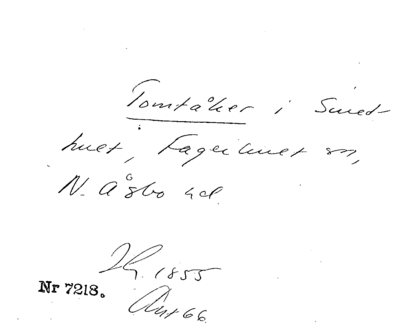 Tomtåker i Smed-
hult, Fagerhult sn,
N. Åsbo hd.
1855
Nr 7218.